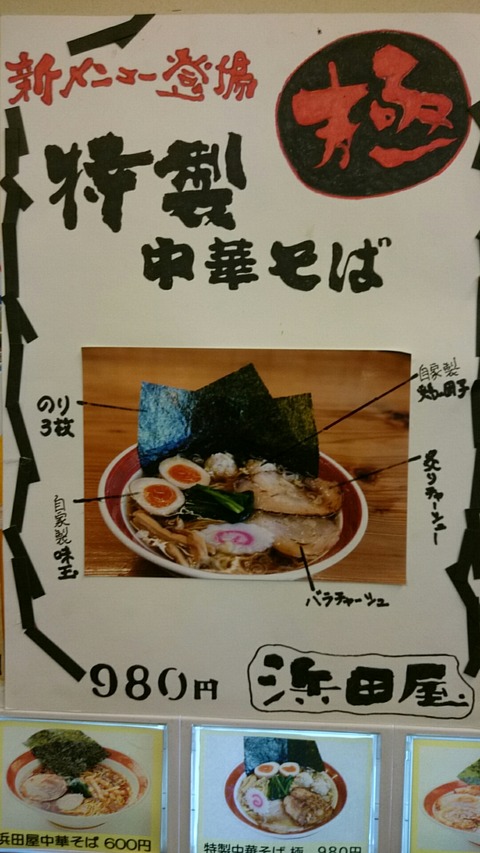 新メニュー登場
極
特製
中華そば
のり
3枚
自家製
団子
炙りチャーシュー
自家製
味玉
バラチャーシュ
980円
浜田屋
浜田屋中華そば 600円
特製中華そば 極 980円